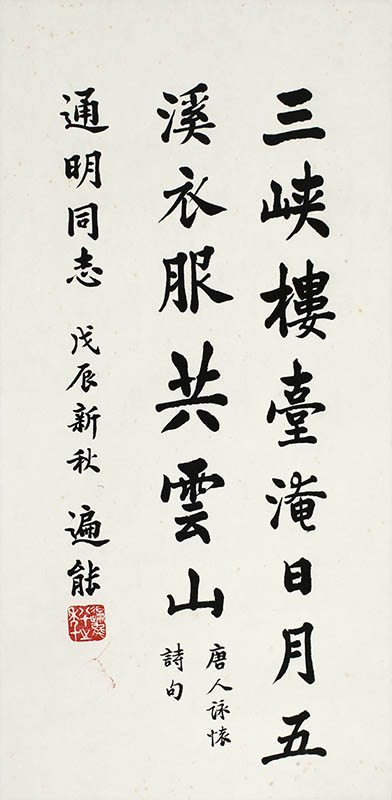 三峡樓臺淹日月五
溪衣服共雲山
唐人詠懷
詩句
通明同志 戊辰新秋 遍能